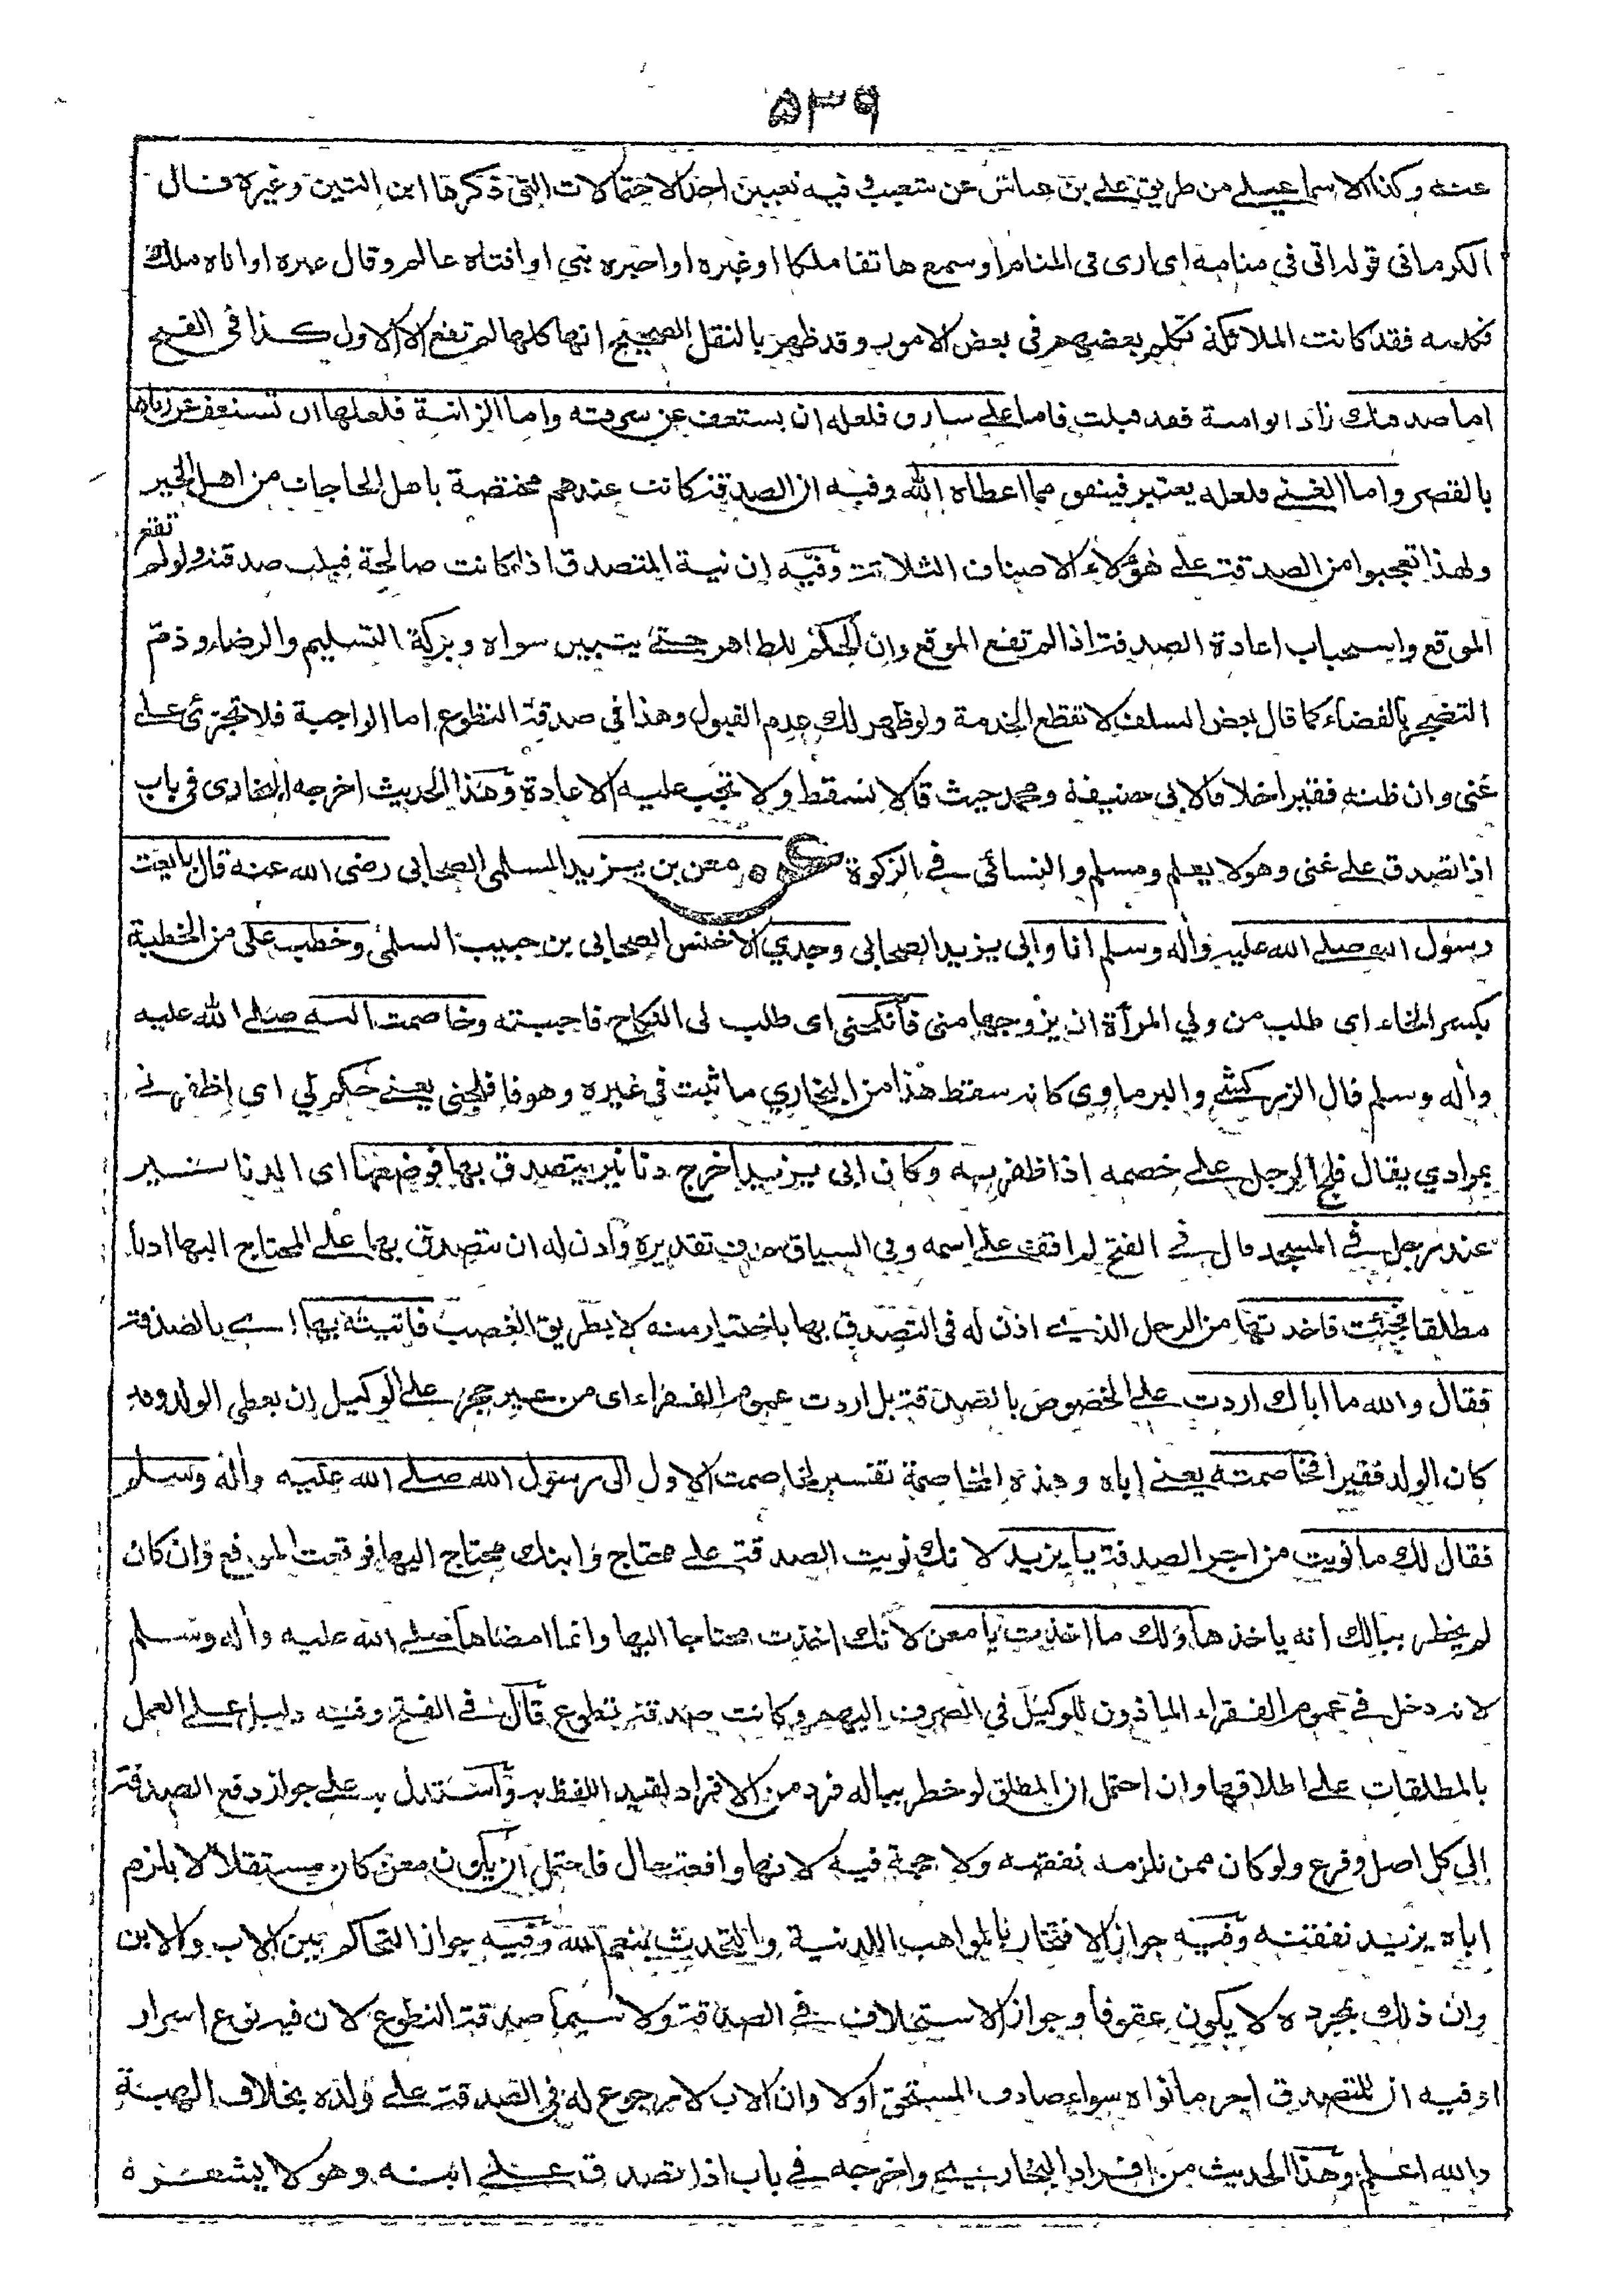 ٥٣٩
عنه وكذا الاسماعيلي من طريق علي بن عياش عن شعيب وفيه تعيين احد الاحتمالات التي ذكرها ابن التين وغيره قال
الكرماني قوله اتي في منامه اي اري في المنام او سمع هاتفا ملكا او غيره او اخبره نبي او افتاه عالم وقال غيره او اتاه ملك
فكلمه فقد كانت الملائكة تكلم بعضهم في بعض الامور وقد ظهر بالنقل الصحيح انها كلها لم تقع الا الاول كذا في الفتح
اما صدقتك زاد ابو امية فقد قبلت فاما علي سارق فلعله ان يستعف عن سرقته واما الزانية فلعلها ان تستعف عن زناها
بالقصر واما الغني فلعله يعتبر فينفق مما اعطاه الله وفيه ان الصدقة كانت عندهم مختصة باهل الحاجات من اهل الخير
ولهذا تعجبوا من الصدقة علي هؤلاء الاصناف الثلاثة وفيه ان نية المتصدق اذا كانت صالحة قبلت صدقته ولو لم تقع
الموقع واستحباب اعادة الصدقة اذا لم تقع الموقع وان الحكم للظاهر حتى يتبين سواه وبركة التسليم والرضاء وذم
التضجر بالقضاء كما قال بعض السلف لا تقطع الخدمة ولو ظهر لك عدم القبول وهذا في صدقة التطوع اما الواجبة فلا تجزئ علي
غني وان ظنه فقيرا خلافا لابي حنيفة ومحمد حيث قالا تسقط ولا تجب عليه الاعادة وهذا الحديث اخرجه البخاري في باب
اذا تصدق علي غني وهو لا يعلم ومسلم والنسائي في الزكوة عن معن بن يزيد السلمي الصحابي رضي الله عنه قال بايعت
رسول الله صلى الله عليه وآله وسلم انا وابي يزيد الصحابي وجدي الاخنس الصحابي بن حبيب السلمي وخطب علي من الخطبة
بكسر الخاء اي طلب من ولي المرأة ان يزوجها مني فأنكحني اي طلب لي النكاح فاجيبته وخاصمت اليه صلى الله عليه
وآله وسلم قال الزركشي والبرماوي كانه سقط هذا من البخاري ما ثبت في غيره وهو فافلجني يعني حكم لي اي اظفرني
بمرادي يقال فلج الرجل علي خصمه اذا ظفر به وكان ابي يزيد اخرج دنانير يتصدق بها فوضعها اي الدنانير
عند رجل في المسجد قال في الفتح لم اقف علي اسمه وفي السياق حذف تقديره وأذن له ان يتصدق بها علي المحتاج اليها اذنا
مطلقا فجئت فاخذتها من الرجل الذي اذن له في التصدق بها باختيار منه لا بطريق الغصب فاتيته بها اي بالصدقة
فقال والله ما اياك اردت علي الخصوص بالصدقة بل اردت عموم الفقراء اي من غير حجر علي الوكيل ان يعطي الولد وقد
كان الولد فقيرا فخاصمته يعني اباه وهذه المخاصمة تفسير لخاصمت الاول الى رسول الله صلى الله عليه وآله وسلم
فقال لك ما نويت من اجر الصدقة يا يزيد لانك نويت الصدقة علي محتاج وابنك محتاج اليها فوقعت الموقع وان كان
لم يخطر ببالك انه ياخذها ولك ما اخذت يا معن لأنك اخذت محتاجا اليها وانما امضاها صلى الله عليه وآله وسلم
لانه دخل في عموم الفقراء الماذون للوكيل في الصرف اليهم وكانت صدقة تطوع قال في الفتح وفيه دليل علي العمل
بالمطلقات علي اطلاقها وان احتمل ان المطلق لو خطر بباله فرد من الافراد لقيد اللفظ به واستدل به علي جواز دفع الصدقة
الي كل اصل وفرع ولو كان ممن تلزمه نفقته ولا حجة فيه لانها واقعة حال فاحتمل ان يكون معن كان مستقلا لا يلزم
اباه يزيد نفقته وفيه جواز الافتخار بالمواهب اللدنية والتحدث بنعم الله وفيه جواز التحاكم بين الاب والابن
وان ذلك بمجرده لا يكون عقوقا وجواز الاستخلاف في الصدقة ولا سيما صدقة التطوع لان فيه نوع اسرار
او فيه ان للتصدق اجر ما نواه سواء صادف المستحق اولا وان الاب لا رجوع له في الصدقة علي ولده بخلاف الهبة
والله اعلم وهذا الحديث من افراد البخاري واخرجه في باب اذا تصدق علي ابنه وهو لا يشعره